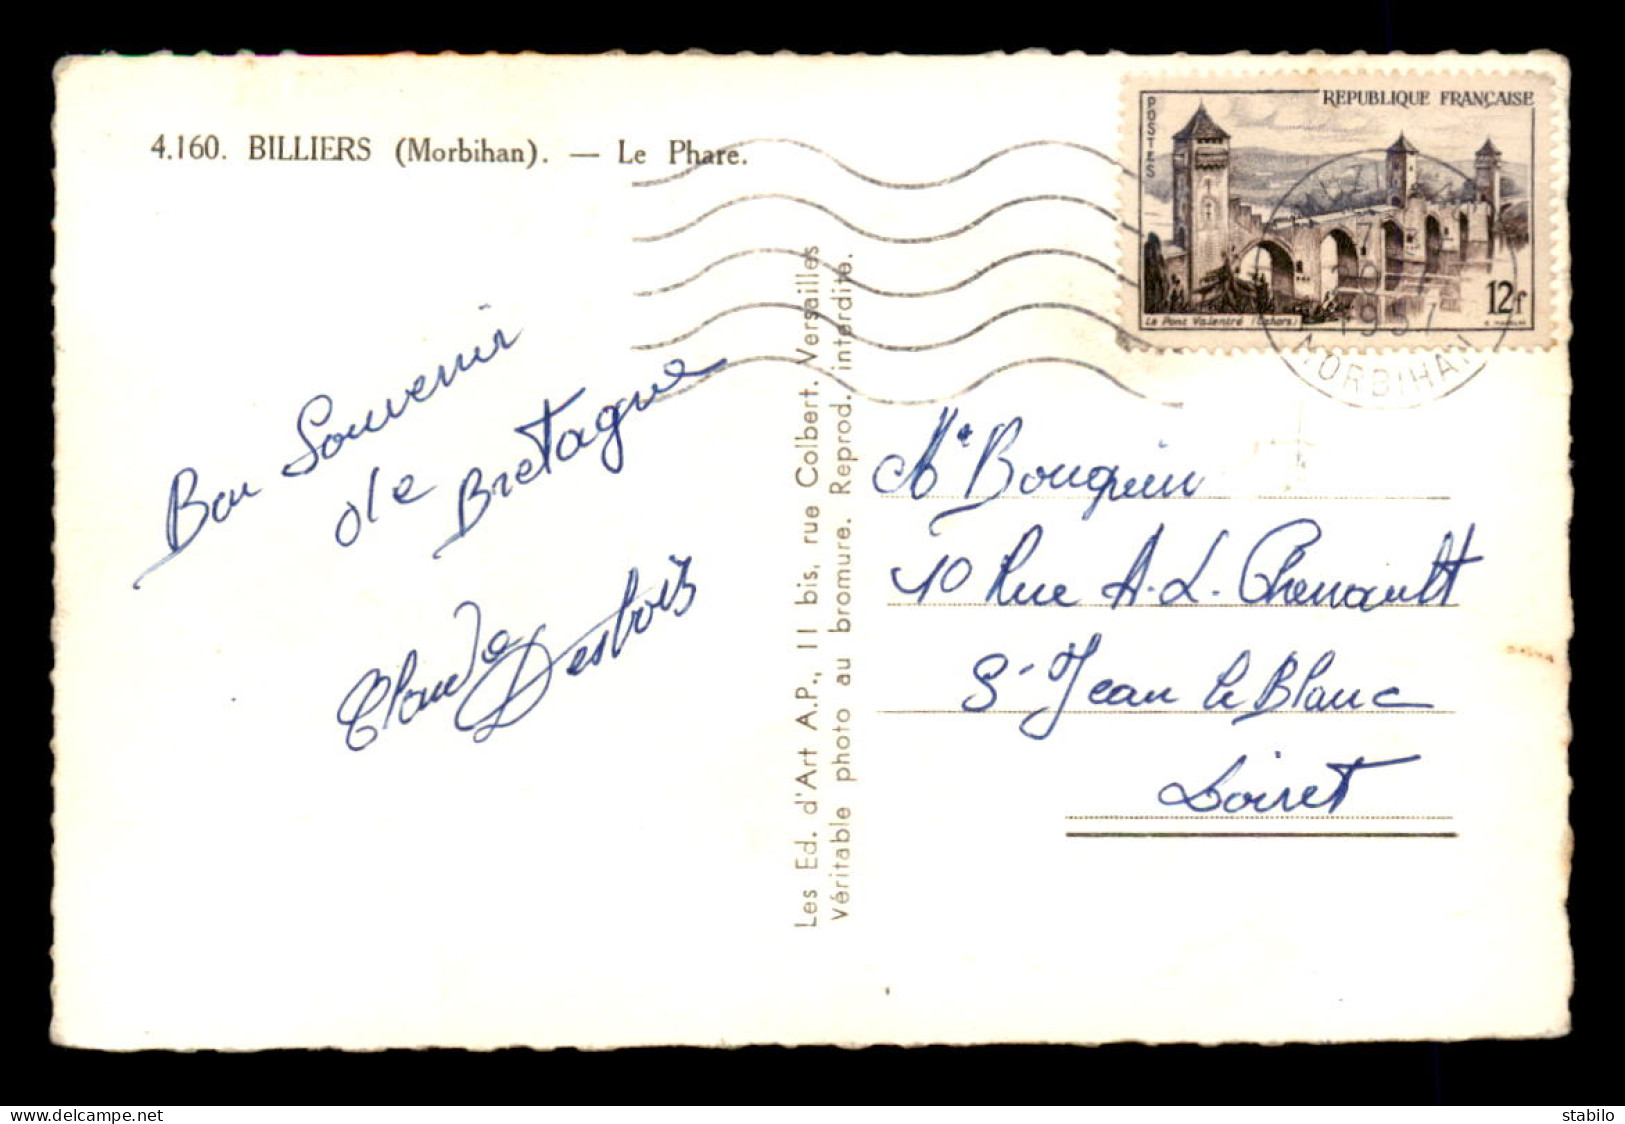 4.160. BILLIERS (Morbihan). — Le Phare.
REPUBLIQUE FRANÇAISE
POSTES
12f
Le Pont Valentré (Cahors)
1957
MORBIHAN
Bon Souvenir
de Bretagne
Claude Desbois
Les Ed. d'Art A.P., 11 bis, rue Colbert. Versailles
Véritable photo au bromure. Reprod. interdite.
Me Bouquin
10 Rue A.L. Chenault
St Jean le Blanc
Loiret
delcampe.net
stabilo